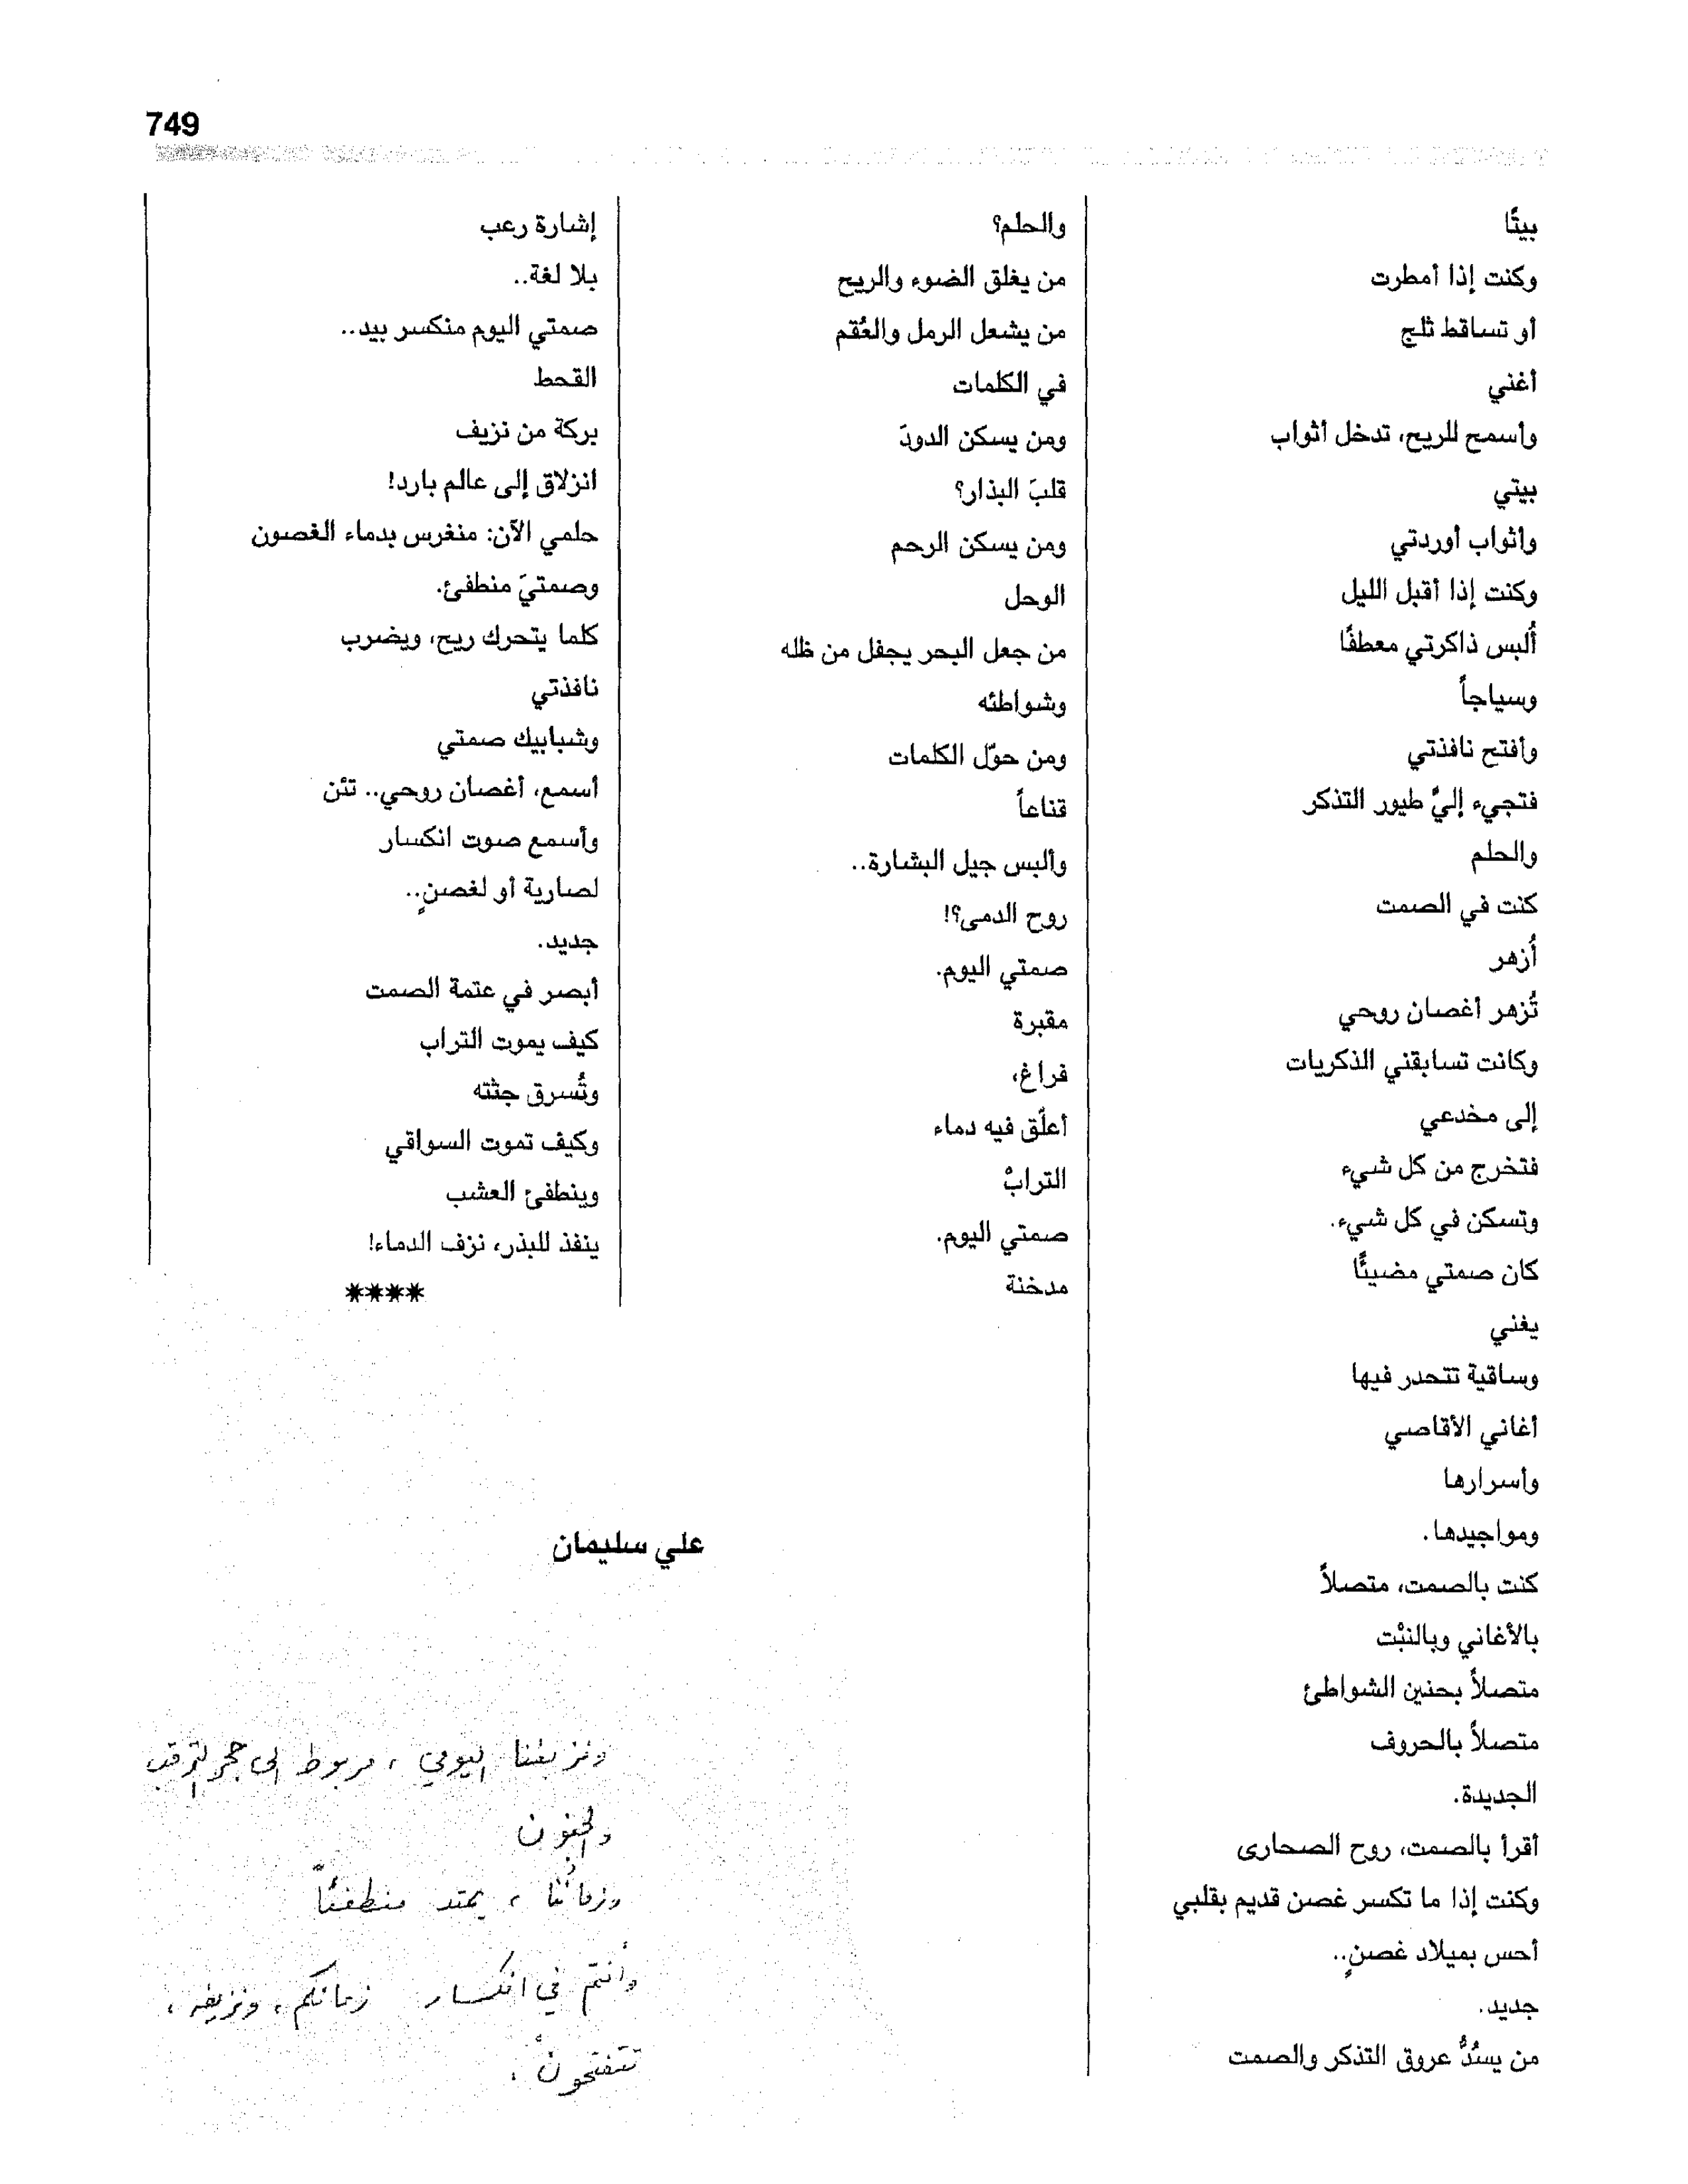 749
بيتًا
وكنت إذا أمطرت
أو تساقط ثلج
أغني
وأسمح للريح، تدخل أثواب
بيتي
وأثواب أوردتي
وكنت إذا أقبل الليل
أُلبس ذاكرتي معطفًا
وسياجاً
وأفتح نافذتي
فتجيء إليَّ طيور التذكر
والحلم
كنت في الصمت
أُزهر
تُزهر أغصان روحي
وكانت تسابقني الذكريات
إلى مخدعي
فتخرج من كل شيء
وتسكن في كل شيء.
كان صمتي مضيئًا
يغني
وساقية تتحدر فيها
أغاني الأقاصي
وأسرارها
ومواجيدها.
كنت بالصمت، متصلاً
بالأغاني وبالنبْت
متصلاً بحنين الشواطئ
متصلاً بالحروف
الجديدة.
أقرأ بالصمت، روح الصحارى
وكنت إذا ما تكسر غصن قديم بقلبي
أحس بميلاد غصنٍ..
جديد.
من يسُدُّ عروق التذكر والصمت
والحلم؟
من يغلق الضوء والريح
من يشعل الرمل والعُقم
في الكلمات
ومن يسكن الدودَ
قلبَ البذار؟
ومن يسكن الرحم
الوحل
من جعل البحر يجفل من ظله
وشواطئه
ومن حوّل الكلمات
قناعاً
وألبس جيل البشارة..
روح الدمى؟!
صمتي اليوم.
مقبرة
فراغ،
أعلّق فيه دماء
الترابْ
صمتي اليوم.
مدخنة
إشارة رعب
بلا لغة..
صمتي اليوم منكسر بيد..
القحط
بركة من نزيف
انزلاق إلى عالم بارد!
حلمي الآن: منغرس بدماء الغصون
وصمتيَ منطفئ.
كلما يتحرك ريح، ويضرب
نافذتي
وشبابيك صمتي
أسمع، أغصان روحي.. تئن
وأسمع صوت انكسار
لصارية أو لغصنٍ..
جديد.
أبصر في عتمة الصمت
كيف يموت التراب
وتُسرق جثته
وكيف تموت السواقي
وينطفئ العشب
ينفذ للبذر، نزف الدماء!
****
علي سليمان
ونزيفنا اليومي، مربوط إلى حجر الترقب
والجنون
وزماننا، يمتد منطفئاً
وأنتم في انكسار زمانكم، ونزيفه،
تتفتحونْ.